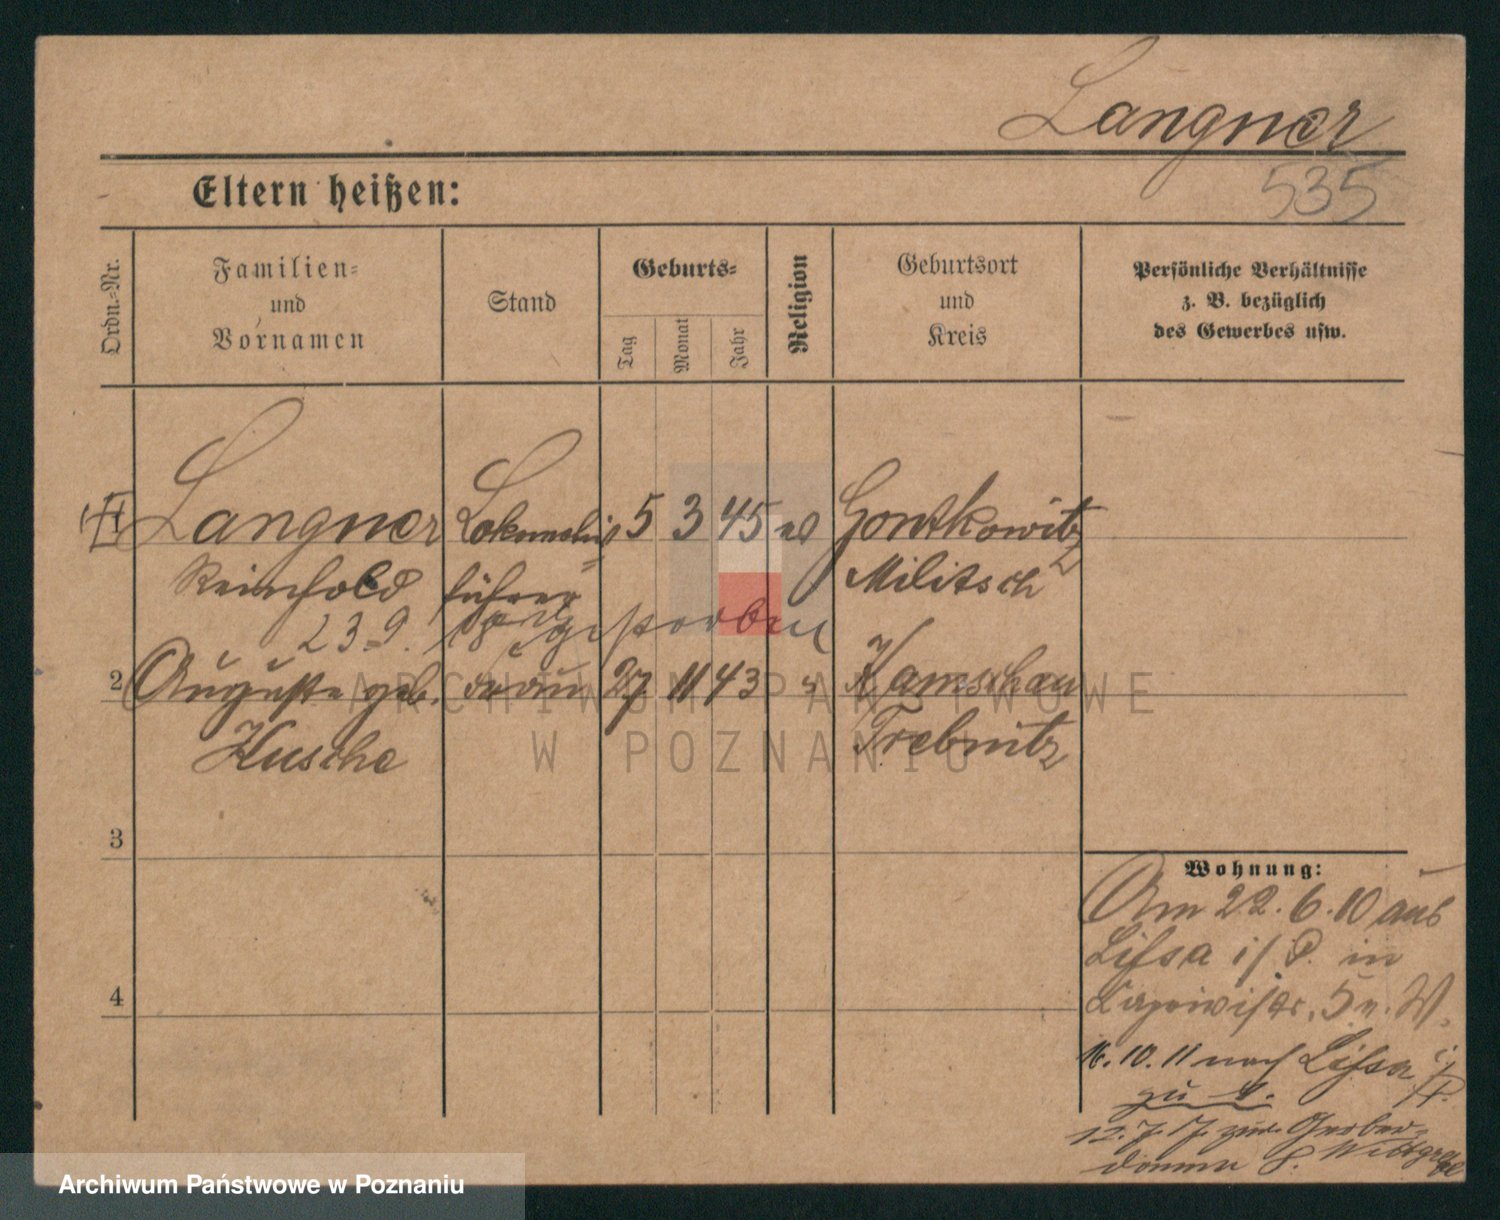 Langner
535
Eltern heißen:
Ordn.-Nr.
Familien-
und
Vornamen
Stand
Geburts-
Tag
Monat
Jahr
Religion
Geburtsort
und
Kreis
Persönliche Verhältnisse
z. B. bezüglich
des Gewerbes usw.
Langner Lokomotiv 5 3 45 Gontkowitz
Reinhold führer Militsch
23.9. gestorben
2 Auguste geb. Frau 27 11 43 Kamschau
Kusche Trebnitz
3
4
Wohnung:
Am 22.6.10 aus
Lissa i/P. in
5 n. W.
16.10.11 nach Lissa i/P.
zu
12.7.17. zur Gerber-
damm 8. Wittgral
ARCHIWUM PAŃSTWOWE
W POZNANIU
Archiwum Państwowe w Poznaniu